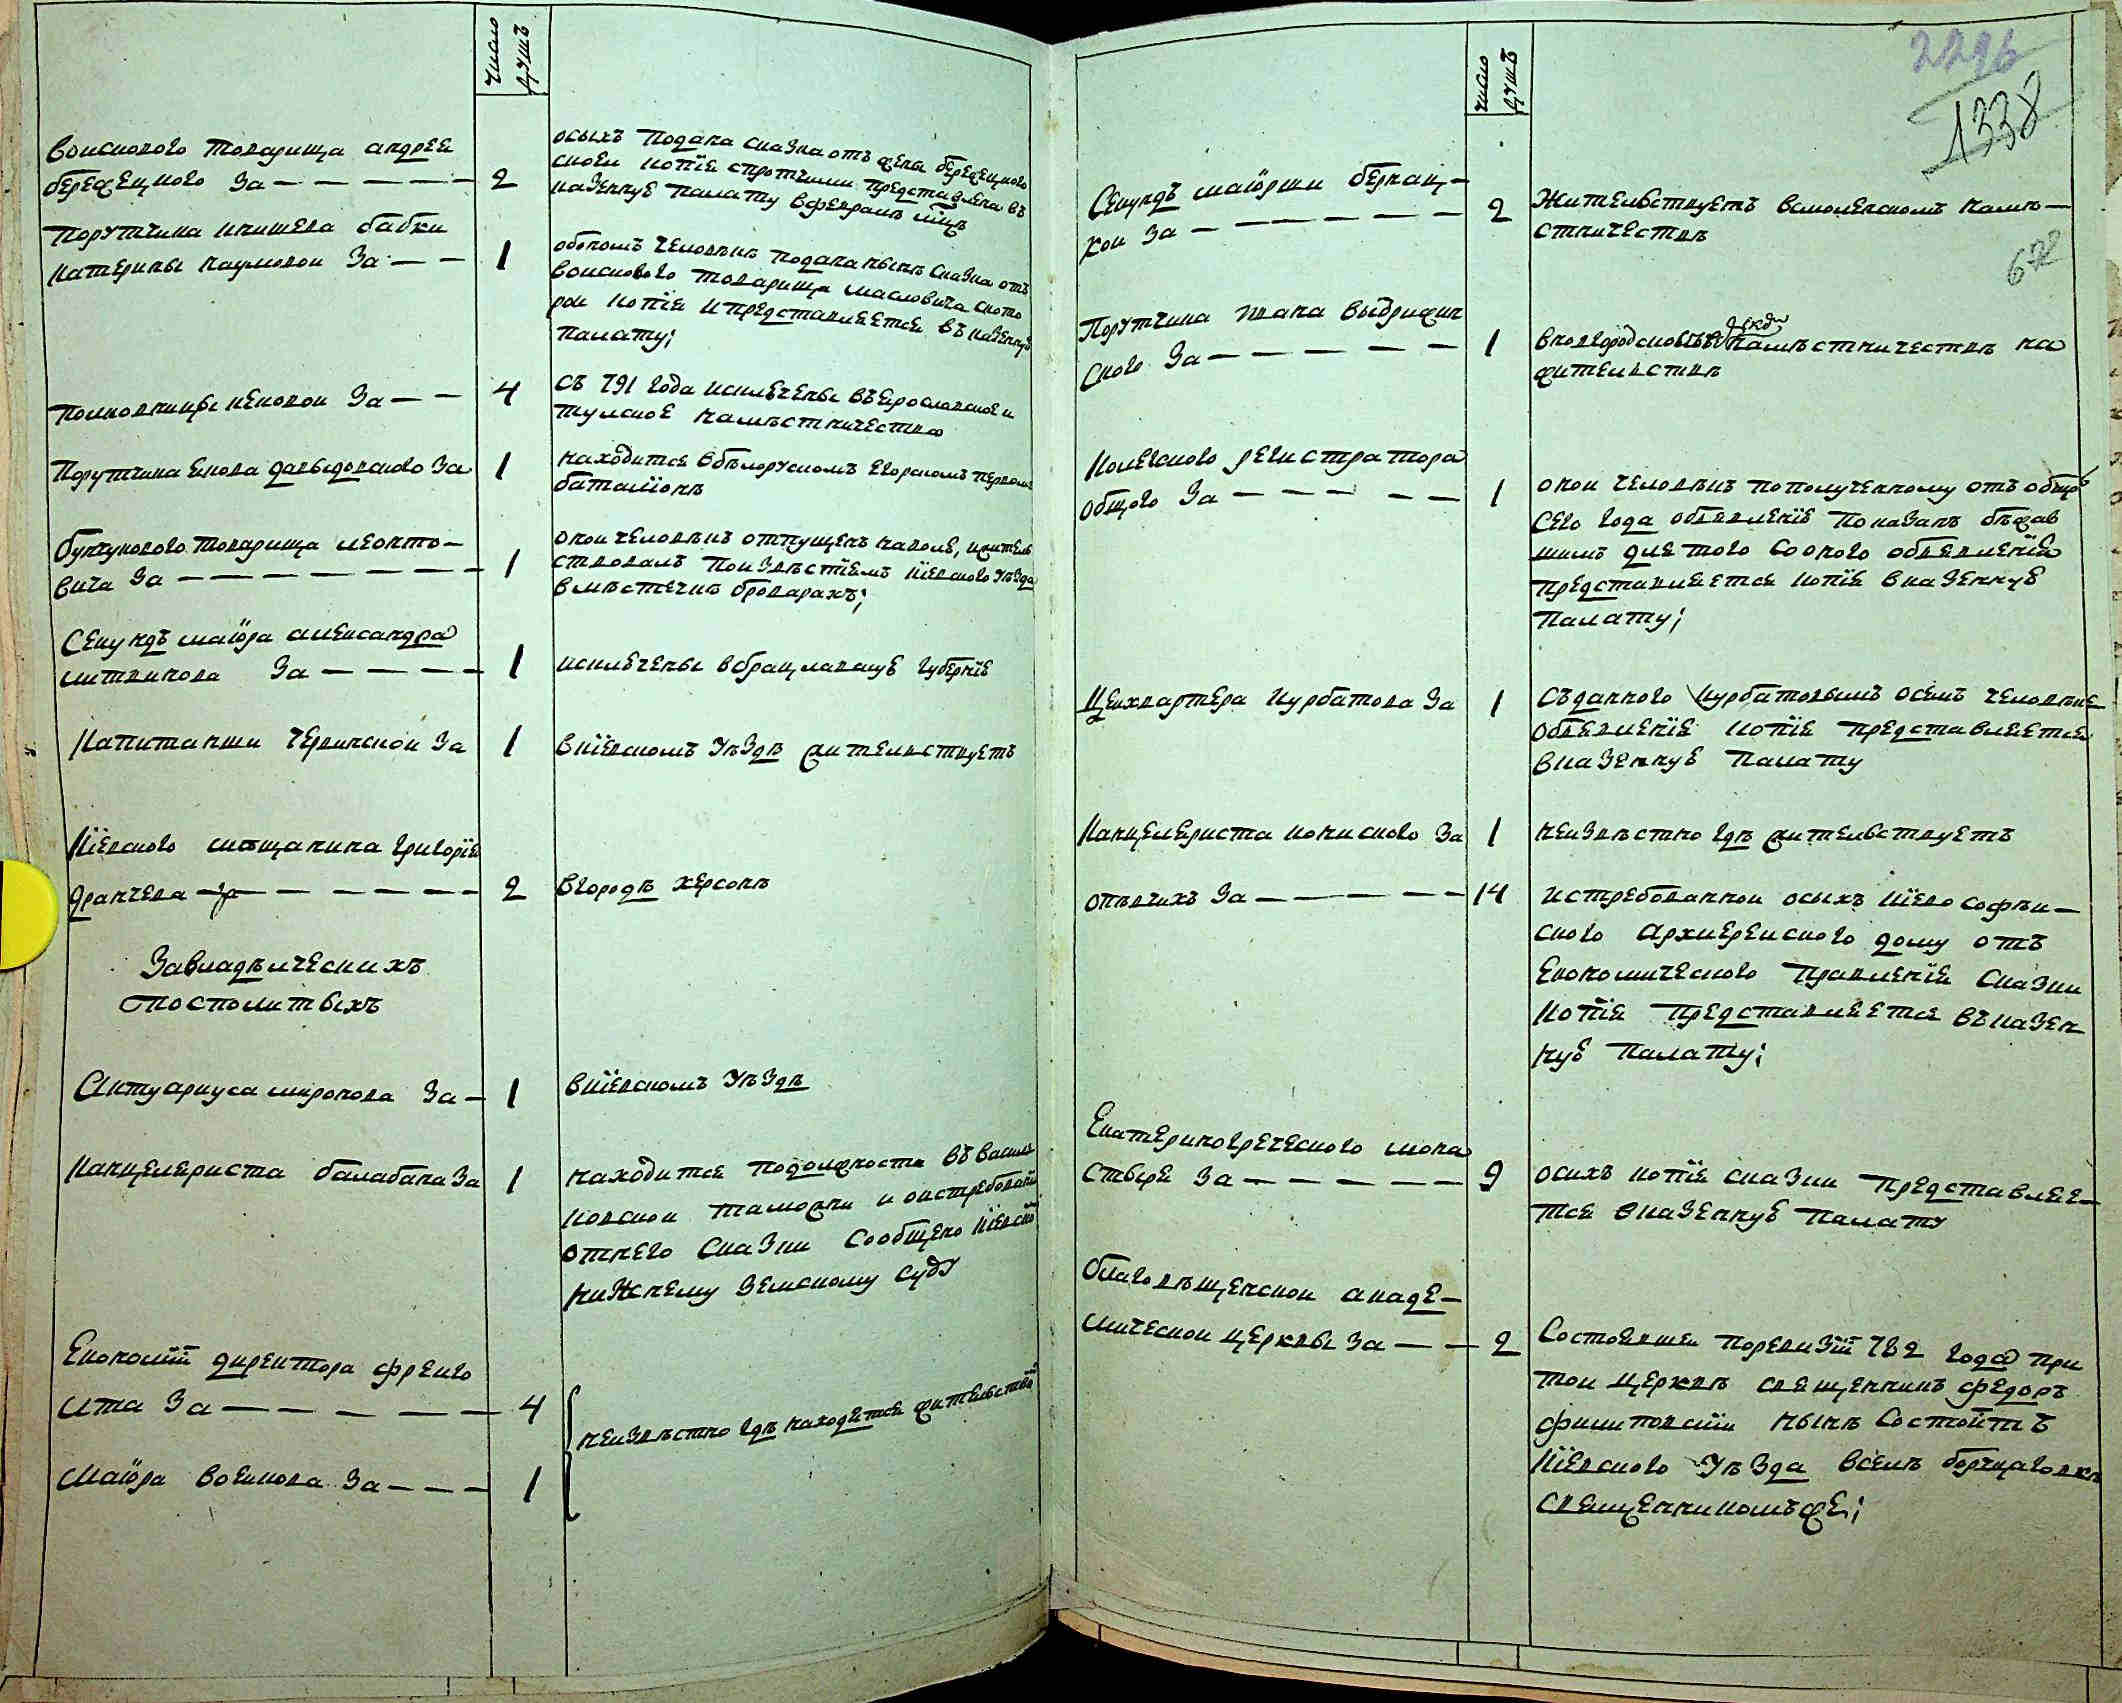 число
душъ
воискового товарища андрея
бережецкого за — — — — — 2
осыхъ подана сказка отъ жены бережецкого
своеи копїя спротчими представлена въ
казенную палату вфевралѣ мцѣ
порутчика кишева бабки
катерины наумовои за — — 1
обономъ человѣкѣ подана нынѣ сказка отъ
воискового товарища масловича ското
рои копїя и представляется въ казенную
палату;
полковницы ековои за — — 4
съ 791 года исключены въ ерославское и
тулское намѣстничество
порутчика якова давыдовского за 1
находится вбѣлоруском егорскомъ первомъ
баталїонѣ
бунчукового товарища леонто—
вича за — — — — — — — 1
онои человѣкъ отпущенъ наволю, ижитель
ствовалъ поизвѣстїемъ кїевского уѣзда
вмѣстечкѣ броварахъ;
секундъ маїора александра
литвинова за — — — — 1
исключены вбрацлавскую губернїю
капитанши червинскои за 1
вкїевскомъ уѣздѣ жителствуетъ
кїевского мѣщанина григорїя
дранчева за — — — — — 2
вгородѣ херсонѣ
Завладѣлческихъ
посполитыхъ
Актуариуса миронова за — 1
вкїевскомъ уѣздѣ
канцеляриста балабана за 1
находится подолжности въ васил
ковскои таможни и оистребованїи
отнего сказки сообщено кїевско
нижнему земскому суду
Економїи директора френго
лта за — — — — — — 4
неизвѣстно гдѣ находятся жителство
маїора воеикова за — — — 1
число
душъ
2296
1338
672
секундъ маїорши бернац—
кои за — — — — — — 2
Жителствуетъ всмоленскомъ намѣ—
стничествѣ
порутчика ивана выдрижи
ского за — — — — — 1
вновгородсковсѣверскомъ намѣстничествѣ на
жителствѣ
колежского регистратора
общого за — — — — — 1
онои человѣкъ пополученному отъ общого
сего года обявленїю показанъ бѣжав
шимъ для того сооного обявленїя
представляется копїя вказенную
палату;
цеихвартера курбатова за 1
съданного курбатовымъ осемъ человѣке
обявленїя копїя представляется
вказенную палату
канцеляриста кониского за 1
неизвѣстно гдѣ жителствуетъ
опѣвчихъ за — — — — — 14
истребованнои осыхъ кїево софѣи—
ского архиереиского дому отъ
економического правленїя сказки
копїя представляется въ казен
ную палату;
Екатериногреческого мона
стыря за — — — — — 9
осихъ копїя сказки представляе—
тся вказенную палату
благовѣщенскои акаде—
мическои церквы за — — 2
Состоявшеи поревизїи 782 года при
тои церквѣ священникъ федоръ
филиповскїи нынѣ состоитъ
кїевского уѣзда вселѣ борщаговкѣ
священникомъ же;